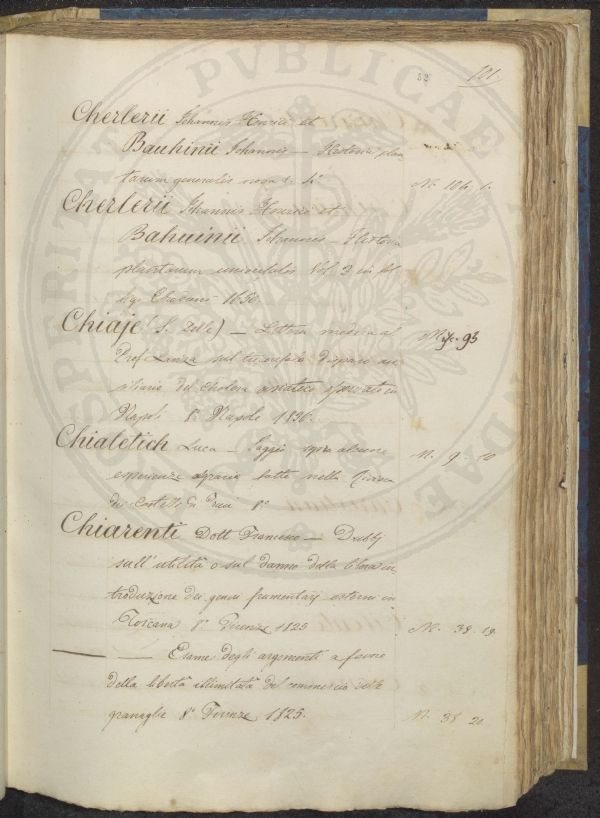 52 101.
Cherlerii Iohannis Henrici et
Bauhinii Iohannis — Historia plan
tarum generalis nova & 4° N. 104. 1.
Cherlerii Iohannis Henrici et
Bahuinii Iohannis — Historia
plantarum universalis Vol. 3 in
1650.
Chiaje (S. Delle) — Lettera medica al N. 93
Prof Lanza sul
siliario del Cholera asiatico osservato in
Napoli 8° Napoli 1836.
Chialetich Luca — Saggio sopra alcune N. 9. 10
esperienze agrarie fatte nella Riviera
dei Castelli di Trau 8°
Chiarenti Dott Francesco — Dubbj
sull' utilità o sul danno della libera in
troduzione dei generi frumentarj esterni in
Toscana 8° Firenze 1825 N. 38. 19.
— — Esame degli argomenti a favore
della libertà illimitata del commercio delle
granaglie 8° Firenze 1825. N. 38 20.
PUBLICAE